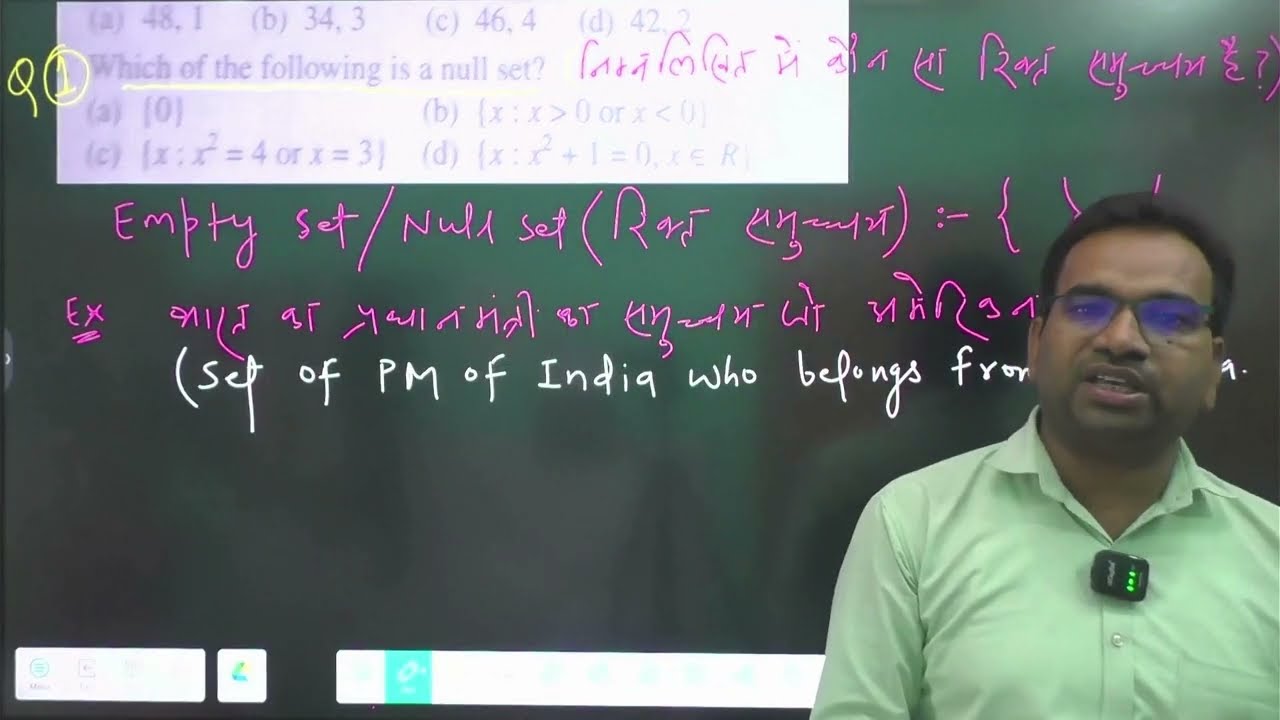 (a) 48, 1 (b) 34, 3 (c) 46, 4 (d) 42, 2
Q 1. Which of the following is a null set? निम्नलिखित में कौन सा रिक्त समुच्चय है?)
(a) {0} (b) {x : x > 0 or x < 0}
(c) {x : x² = 4 or x = 3} (d) {x : x² + 1 = 0, x ∈ R}
Empty set/Null set (रिक्त समुच्चय) :- { }
Ex भारत का प्रधानमंत्री का समुच्चय जो अमेरिकन
(Set of PM of India who belongs from